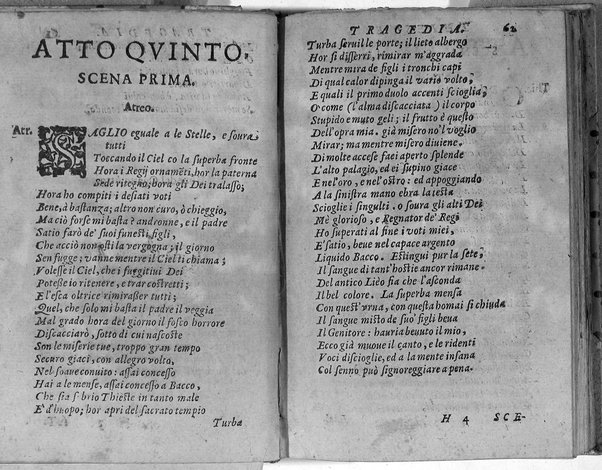 ATTO QVINTO.
SCENA PRIMA.
Atreo.
Atr. SAGLIO eguale a le Stelle, e soura
tutti
Toccando il Ciel co la superba fronte
Hora i Regij ornamẽti, hor la paterna
Sede ritegno; hora gli Dei tralasso;
Hora ho compiti i desiati voti
Bene, à bastanza; altro non curo, ò chieggio,
Ma ciò forse mi basta? andronne, e il padre
Satio farò de' suoi funesti figli,
Che acciò non osti la vergogna; il giorno
Sen fugge; vanne mentre il Ciel ti chiama;
Volesse il Ciel, che i fuggitiui Dei
Potesse io ritenere, e trar costretti;
E l'esca oltrice rimirasser tutti;
Quel, che solo mi basta il padre il veggia
Mal grado hora del giorno il fosco horrore
Discacciarò, sotto di cui nascoste
Son le miserie tue, troppo gran tempo
Securo giaci, con allegro volto,
Nel soaue conuito: assai concesso
Hai a le mense, assai concesso a Bacco,
Che sia sobrio Thieste in tanto male
E' d'huopo; hor apri del sacrato tempio
Turba
TRAGEDIA. 62
Turba seruil le porte; il lieto albergo
Hor si disserri, rimirar m'aggrada
Mentre mira de figli i tronchi capi
Di qual calor dipinga il vario volto,
E quali il primo duolo accenti scioglia;
O come (l'alma discacciata) il corpo
Stupido e muto geli; il frutto è questo
Dell'opra mia. già misero no'l voglio
Mirar; ma mentre misero diuiene.
Di molte accese faci aperto splende
L'alto palagio, ed ei supino giace
E ne l'oro, e nel'ostro: ed appoggiando
A la sinistra mano ebra la testa
Scioglie i singulti. o soura gli altri Dei
Mè glorioso, e Regnator de' Regi
Ho superati al fine i voti miei,
E' satio, beue nel capace argento
Liquido Bacco. Estingui pur la sete,
Il sangue di tant'hostie ancor rimane.
Del antico Lièo fia che l'asconda
Il bel colore. La superba mensa
Con quest'vrna, con questa homai si chiuda
Il sangue misto de suo' figli beua
Il Genitore: hauria beuuto il mio,
Ecco già muoue il canto, e le ridenti
Voci discioglie, ed a la mente insana
Col senno può signoreggiare a pena.
H 4 SCE-